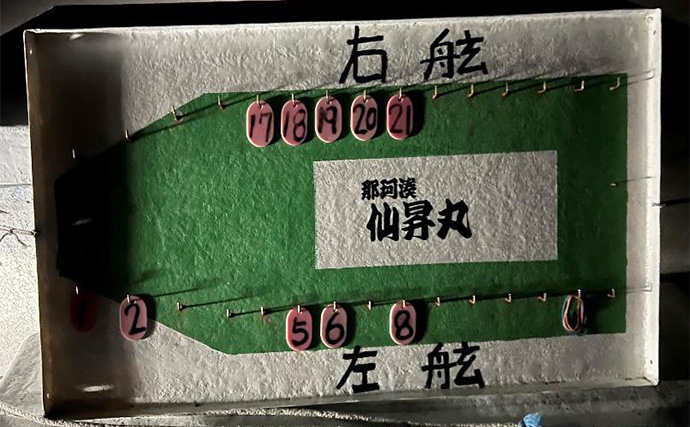 右舷
17 18 19 20 21
那珂湊
仙昇丸
1 2 5 6 8
左舷